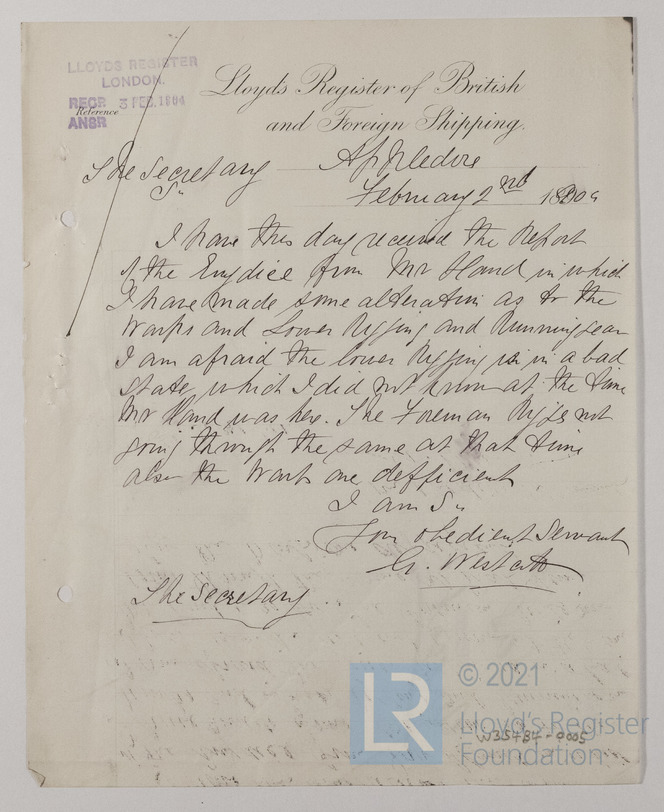 LLOYDS REGISTER
LONDON.
RECD 3 FEB. 1904
Reference
ANSR
Lloyds Register of British
and Foreign Shipping.
The Secretary Appledore
Sir February 2nd 1904
I have this day received the Report
of the Eurydice from Mr Hand in which
I have made some alteration as to the
Warps and Lower Rigging and Running Gear
I am afraid the lower Rigging is in a bad
state, which I did not know at the time
Mr Hand was here. The Foreman Rigger not
going through the same at that time
also the Warps are defficient
I am Sir
Your obedient Servant
G. Westcott
The Secretary.
LR
© 2021
Lloyd's Register
Foundation
W35787-0005